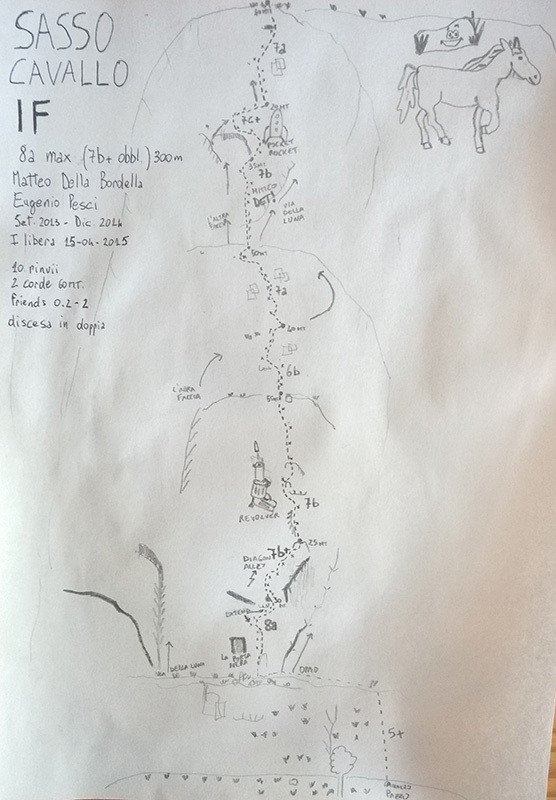 SASSO
CAVALLO
IF
8a max (7b+ obbl.) 300m
Matteo Della Bordella
Eugenio Pesci
Set. 2013 - Dic. 2014
I libera 15-04-2015
10 rinvii
2 corde 60 mt.
Friends 0.2-2
discesa in doppia
7a
7c+
POCKET
ROCKET
35MT
7b
MITICO
L'ALTRA
FACCIA
VIA
DELLA
LUNA
50MT
7a
40MT
6b
L'ALTRA
FACCIA
7b
REVOLVER
25MT
7b+
DIAGON
ALLEY
30
MT
8a
LA PORTA
NERA
DELLA LUNA
5+